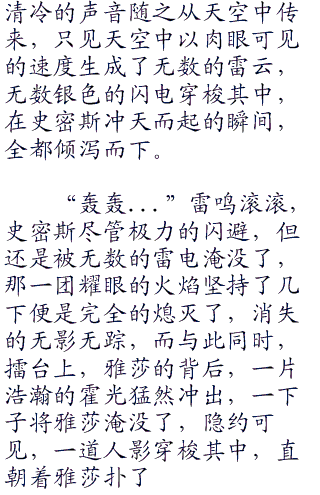 清冷的声音随之从天空中传
来，只见天空中以肉眼可见
的速度生成了无数的雷云，
无数银色的闪电穿梭其中，
在史密斯冲天而起的瞬间，
全都倾泻而下。
“轰轰...”雷鸣滚滚，
史密斯尽管极力的闪避，但
还是被无数的雷电淹没了，
那一团耀眼的火焰坚持了几
下便是完全的熄灭了，消失
的无影无踪，而与此同时，
擂台上，雅莎的背后，一片
浩瀚的霍光猛然冲出，一下
子将雅莎淹没了，隐约可
见，一道人影穿梭其中，直
朝着雅莎扑了